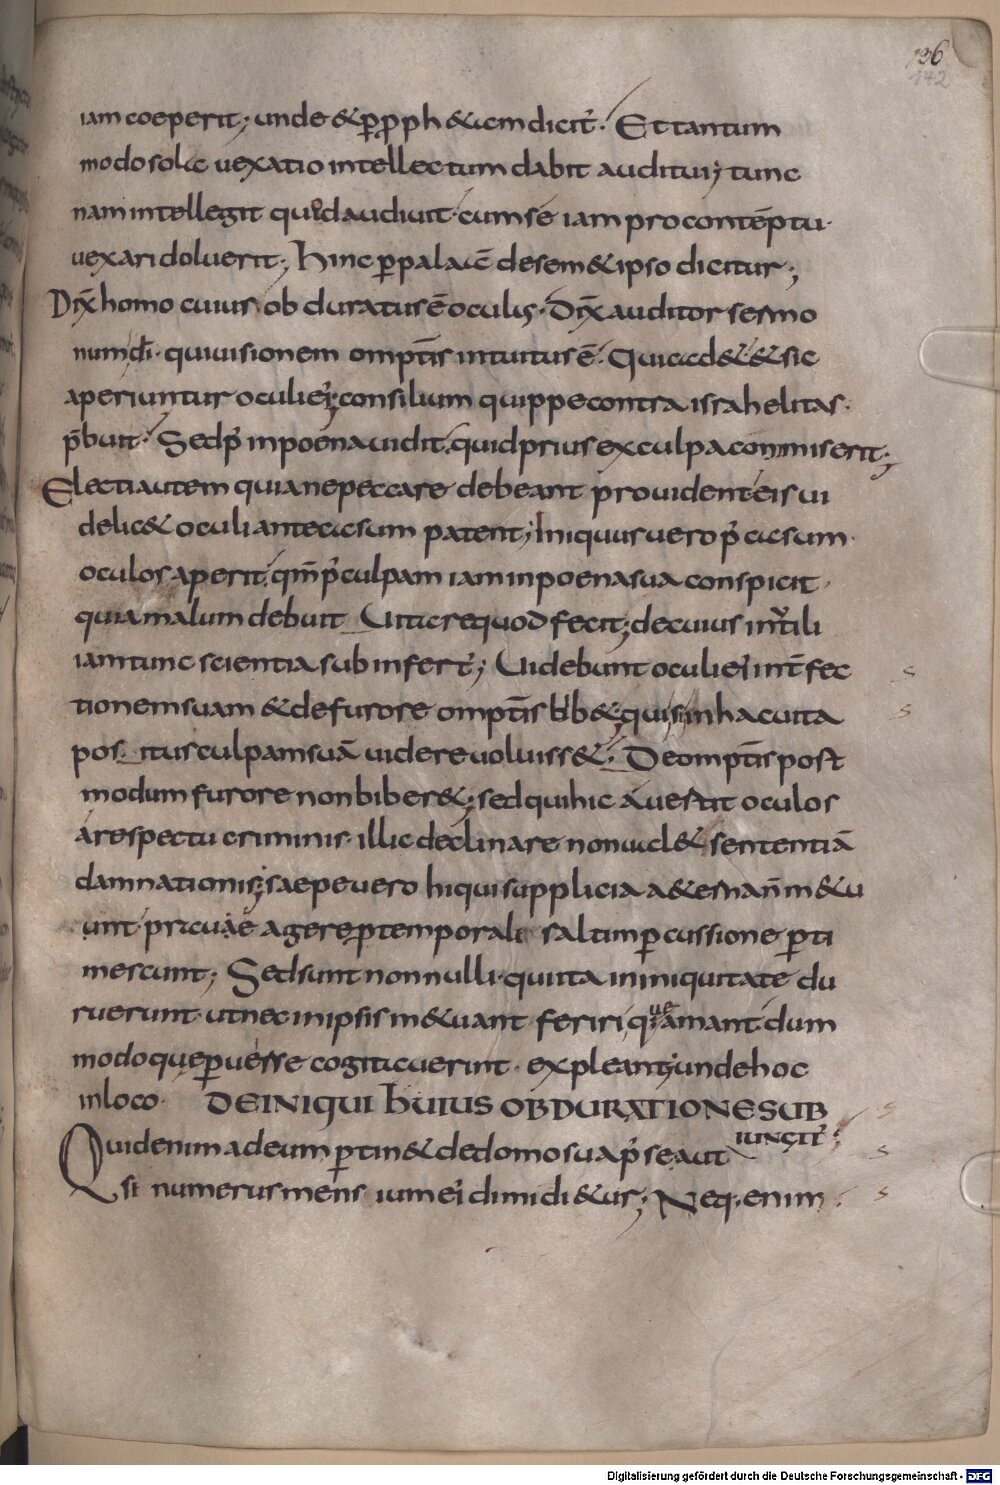 136
142
iam coeperit; unde & p̱ p̱ph&am dicit̄. Et tantum
modo sola uexatio intellectum dabit auditui; tunc
nam intellegit quod audiuit. cum se iam pro contēptu.
uexari doluerit; Hinc p̱ palacē de sem&ipso dicitur;
Dix̄ homo cuius obduratus ē oculus. Dix̄ auditor sermo
num dī. qui uisionem omptīs intuitus ē. Qui cad& & sic
aperiuntur oculi ei; consilium quippe contra israhelitas.
p̄buit. Sed p̄ in poena uidit. quid prius ex culpa commiserit;
Electi autem quia ne peccare debeant prouident eis ui
delic& oculi ante casum patent; Iniquus uero p̄ casum
oculos aperit. qm̄ p̄ culpam iam in poena sua conspicit
quia malum debuit Uitare quod fecit; de cuius inutili
iam tunc scientia subinfert̄; Uidebunt oculi ei int̄fec
tionem suam & de furore omptīs bib& quisi in hac uita
pos itus culpam suā uidere uoluiss&. De omptīs post
modum furore non biber&; sed qui hic auertit oculos
a respectu criminis. illic declinare non ual& sententiā
damnationis; saepe uero hi qui supplicia a&erna n̄ m&u
unt. praue agere p̱ temporali saltim p̱cussione p̱ti
mescunt; Sed sunt nonnulli. qui ita in iniquitate du
ruerunt. ut nec in ipsis m&uant feriri que amant. dum
modo que p̱uerse cogitauerint. expleant; unde hoc
in loco. DE INIQUI HUIUS OBDURATIONE SUB
IUNGIT̄;
Quid enim ad eum p̱tin& de domo sua p̄ se aut
si numerus mens ium ei dimidi&ur; Neq. enim
Digitalisierung gefördert durch die Deutsche Forschungsgemeinschaft - DFG